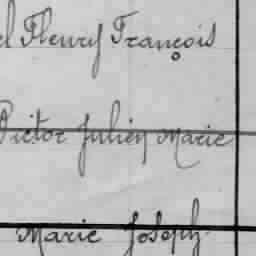 Fleury François
Victor Julien Marie
Marie Joseph